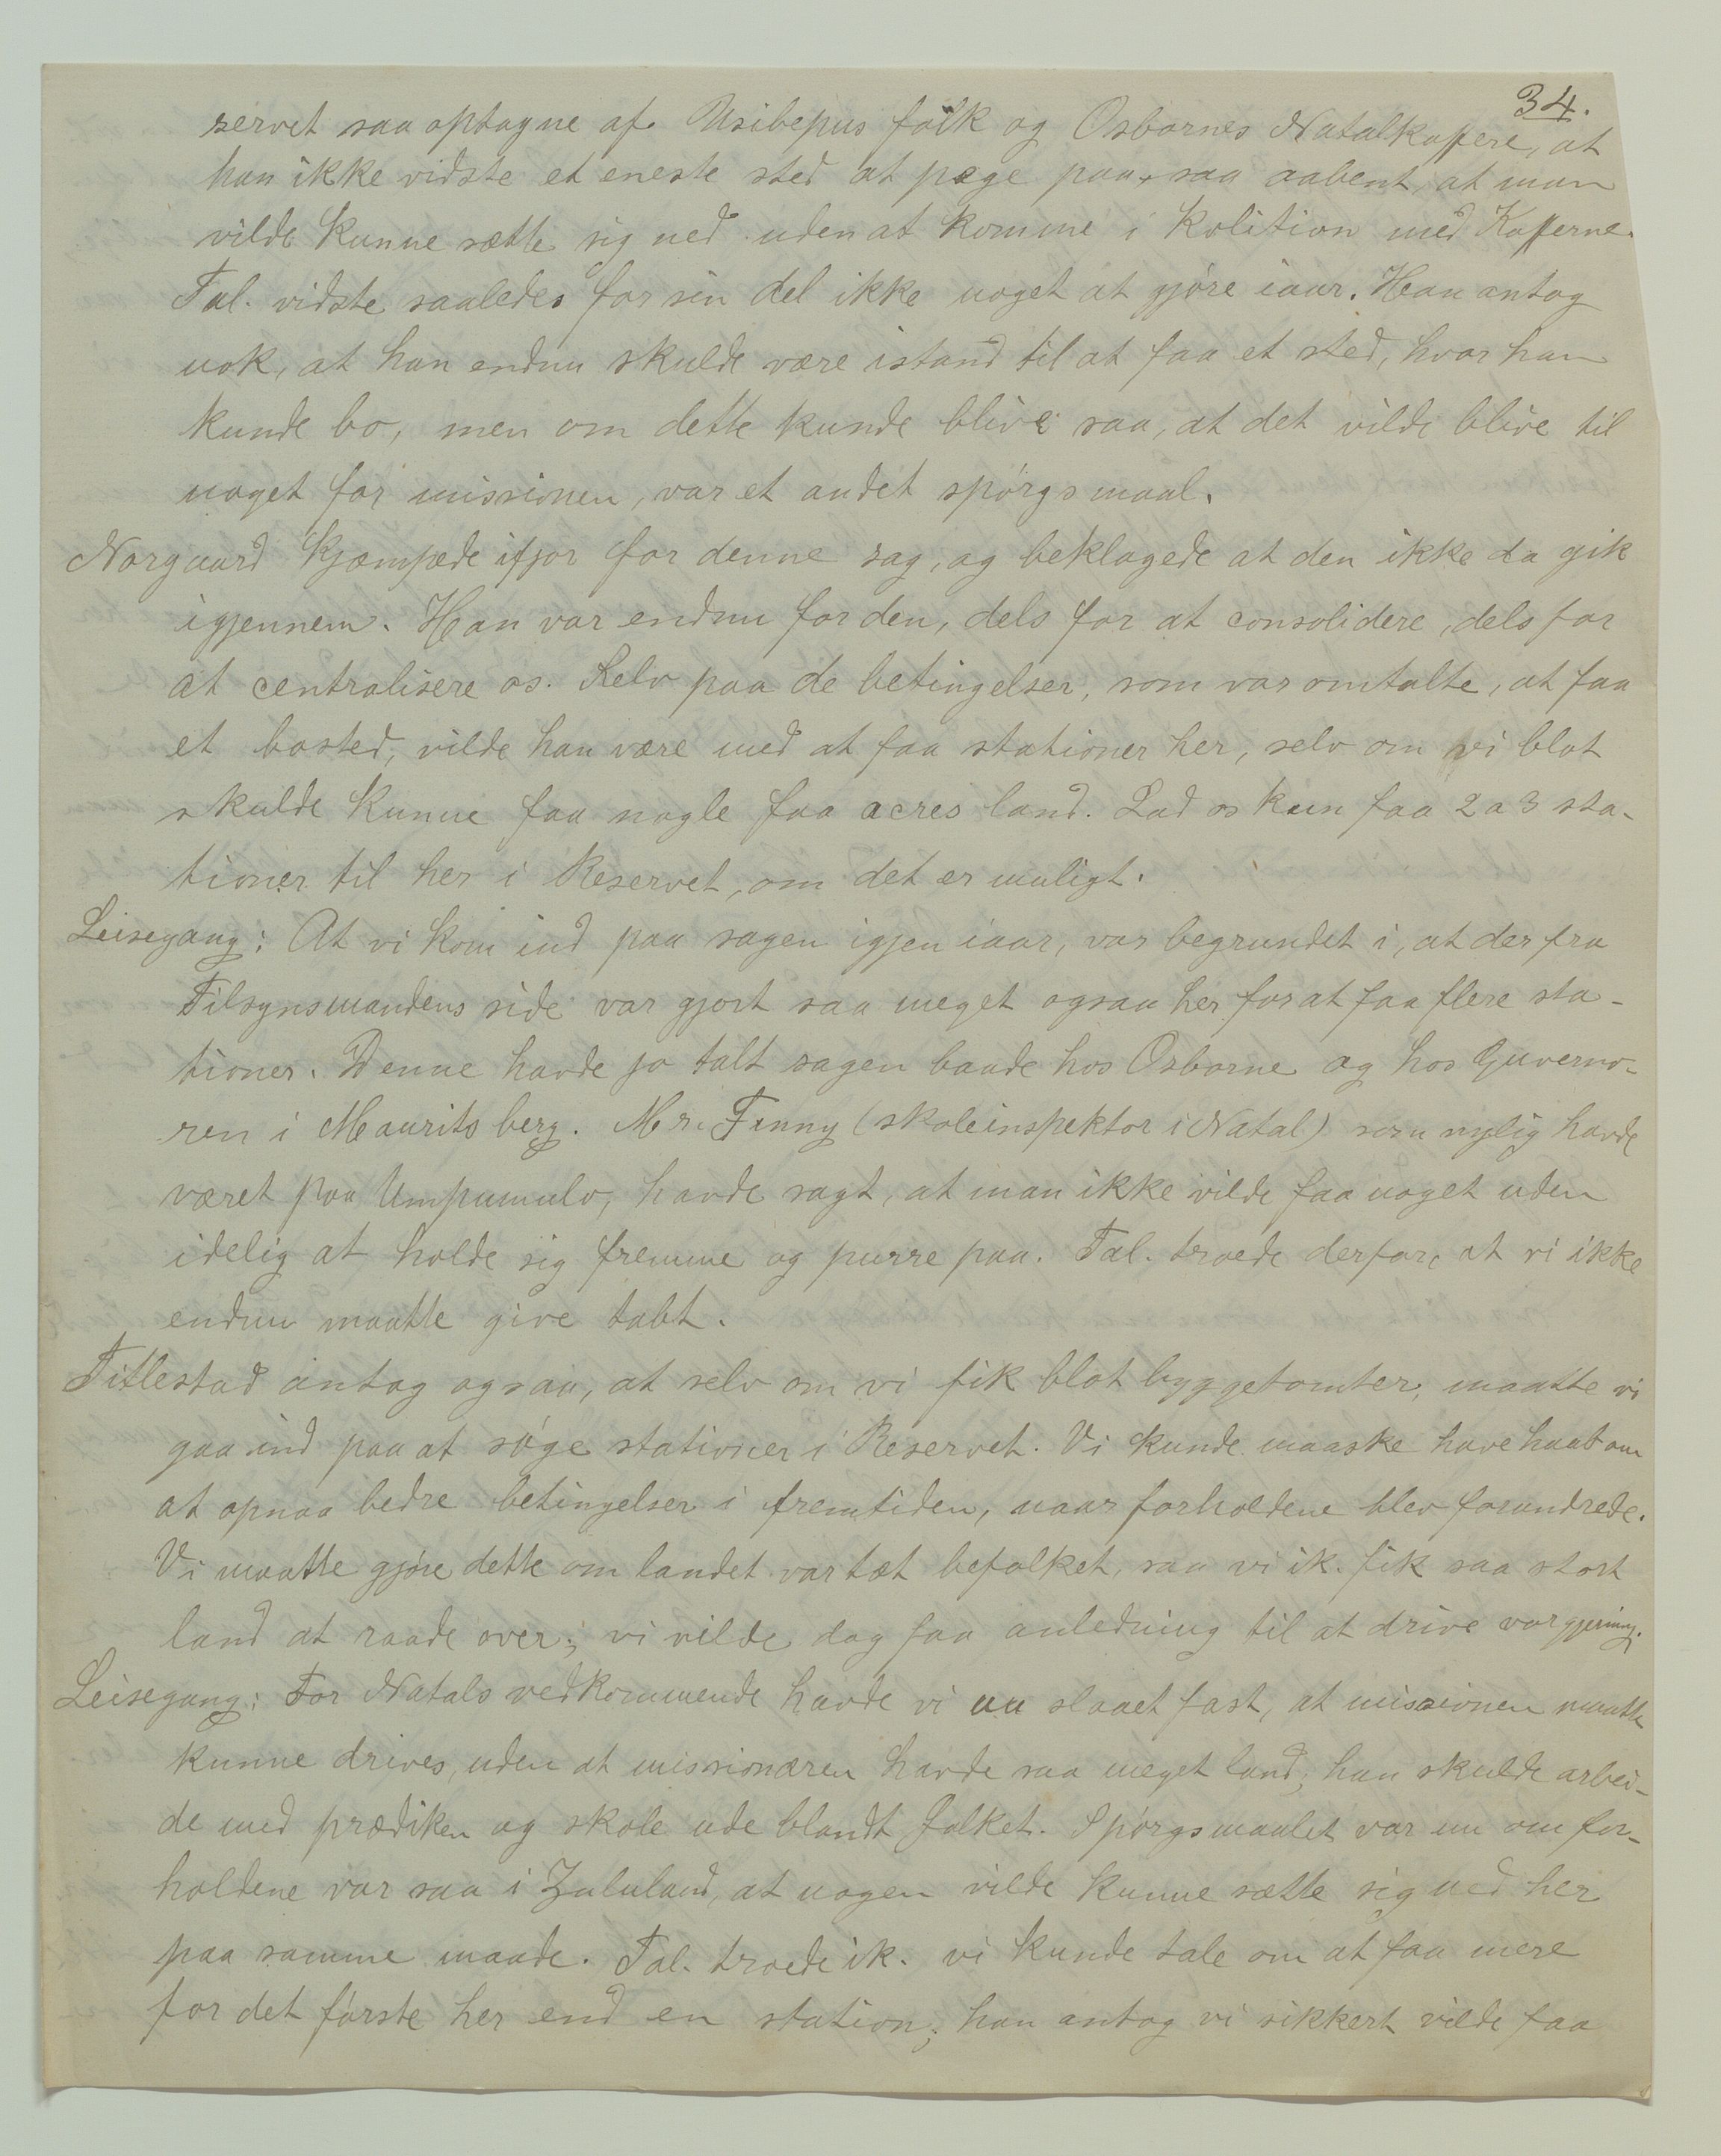 34.
servet saa optagne af Usibepus folk og Osbornes Natalkaffere, at
han ikke vidste et eneste sted at pege paa, saa aabent, at man
vilde kunne sætte sig ned uden at komme i kolition med Kafferne.
Tal. vidste saaledes for sin del ikke noget at gjøre iaar. Han antog
nok, at han endnu skulde være istand til at faa et sted, hvor han
kunde bo, men om dette kunde blive saa, at det vilde blive til
noget for missionen, var et andet spørgsmaal.
Norgaard kjæmpede ifjor for denne sag, og beklagede at den ikke da gik
igjennem. Han var endnu for den, dels for at consolidere, dels for
at centralisere os. Selv paa de betingelser, som var omtalte, at faa
et bosted, vilde han være med at faa stationer her, selv om vi blot
skulde kunne faa nogle faa acres land. Lad os kun faa 2 a 3 sta-
tioner til her i Reservet, om det er muligt.
Leisegang: At vi kom ind paa sagen igjen iaar, var begrundet i, at der fra
Tilsynsmandens side var gjort saa meget ogsaa her for at faa flere sta-
tioner. Denne havde jo talt sagen baade hos Osborne og hos Guvernø-
ren i Mauritsberg. Mr. Finny (skoleinspektør i Natal) som nylig havde
været paa Umpumulo, havde sagt, at man ikke vilde faa noget uden
idelig at holde sig fremme og purre paa. Tal. troede derfor, at vi ikke
endnu maatte give tabt.
Titlestad antog ogsaa, at selv om vi fik blot byggetomter, maatte vi
gaa ind paa at søge stationer i Reservet. Vi kunde maaske have haab om
at opnaa bedre betingelser i fremtiden, naar forholdene blev forandrede.
Vi maatte gjøre dette om landet var tæt befolket, saa vi ik. fik saa stort
land at raade over; vi vilde dog faa anledning til at drive vor gjerning.
Leisegang: For Natals vedkommende havde vi nu slaaet fast, at missionen maatte
kunne drives, uden at missionæren havde saa meget land; han skulde arbei-
de med prædiken og skole ude blandt folket. Spørgsmaalet var nu om for-
holdene var saa i Zululand, at nogen vilde kunne sætte sig ned her
paa samme maade. Tal. troede ik. vi kunde tale om at faa mere
for det første her end en station; han antog vi sikkert vilde faa